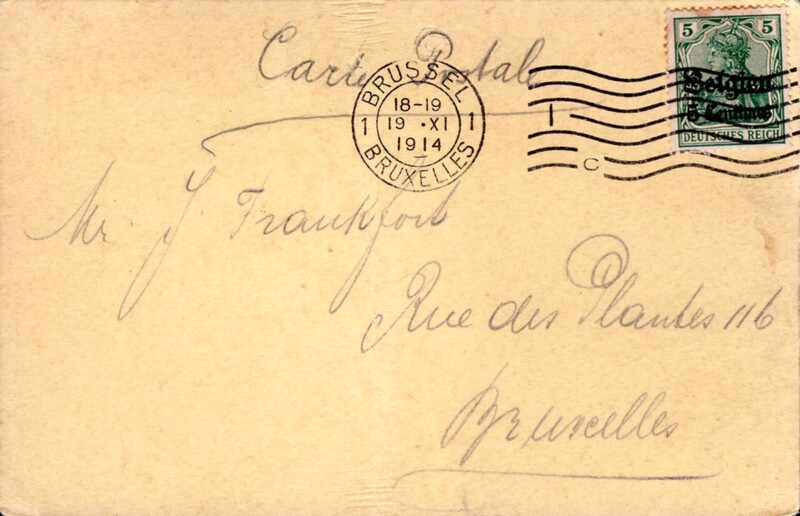 Carte Postale
5 5
Belgien
5 Centimes
DEUTSCHES REICH
BRUSSEL
18-19
1 19 · XI 1
1914
BRUXELLES
C
Mr. J. Frankfort
Rue des Plantes 116
Bruxelles